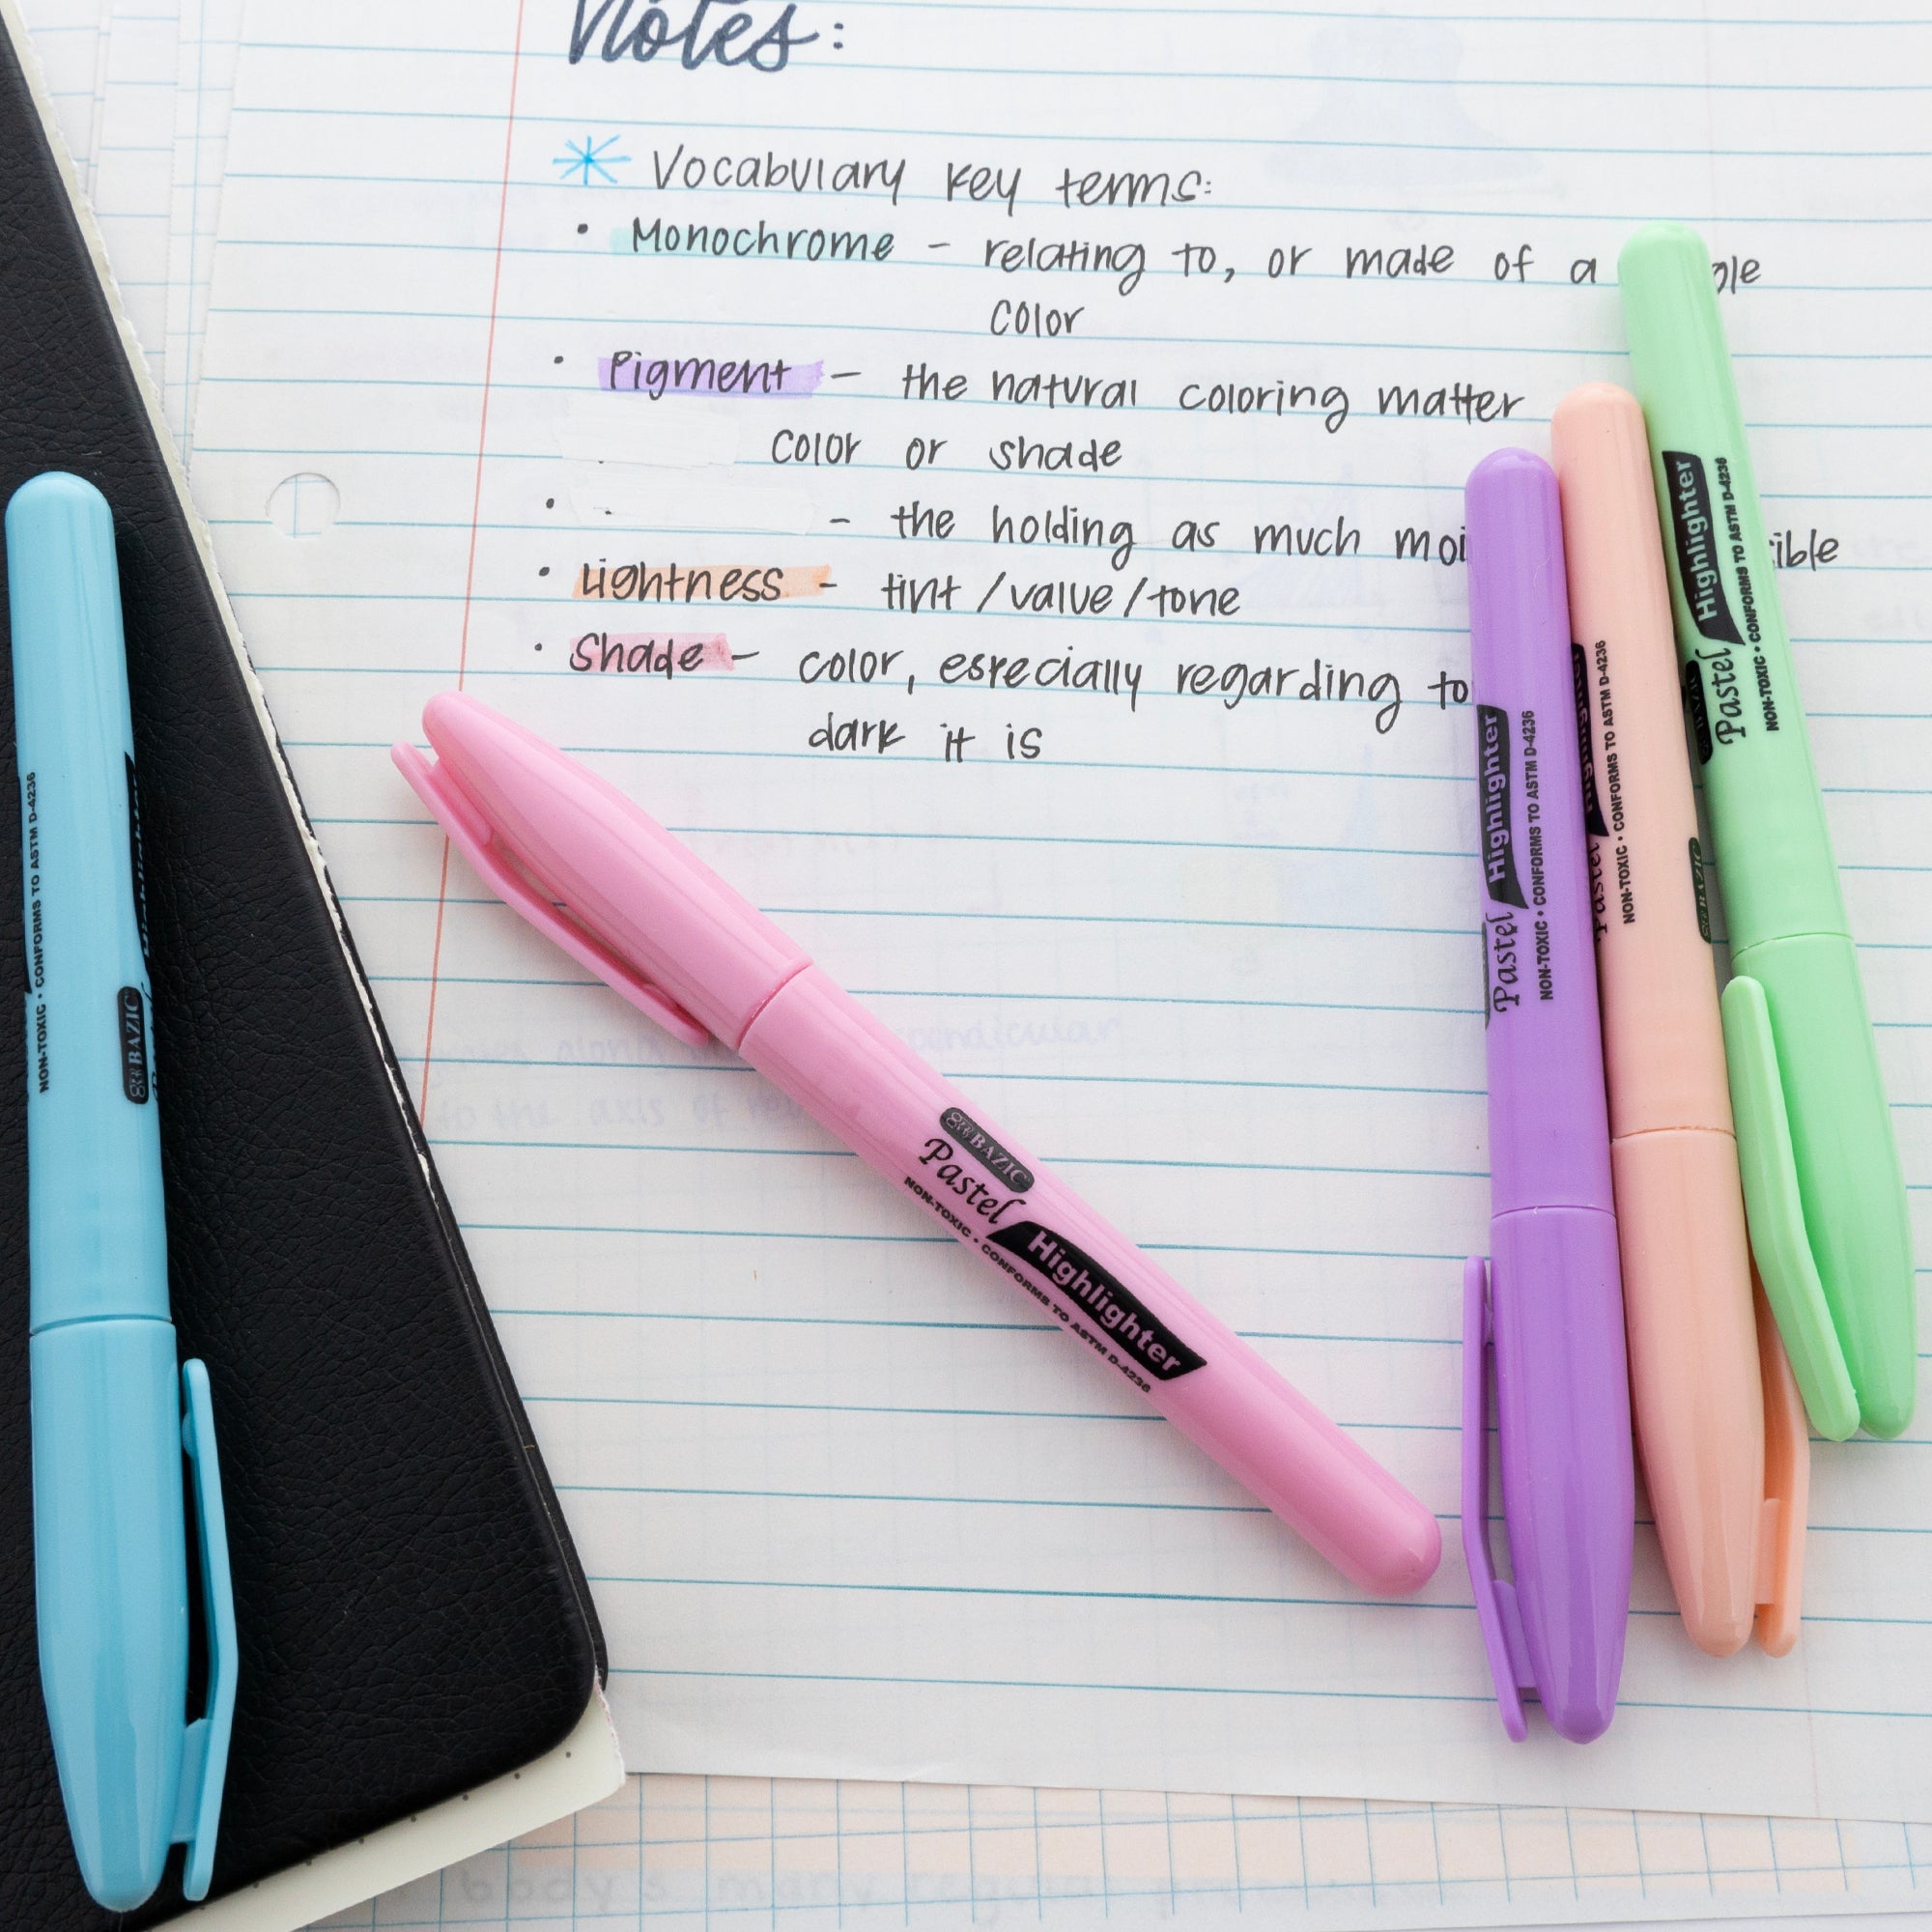 Notes:
Vocabulary key terms:
• Monochrome - relating to, or made of a
color
• Pigment - the natural coloring matter
color or shade
• - the holding as much
• Lightness - tint/value/tone
• Shade - color, especially regarding to
dark it is
BAZIC
Pastel Highlighter
NON-TOXIC • CONFORMS TO ASTM D-4236
Pastel Highlighter
NON-TOXIC • CONFORMS TO ASTM D-4236
Pastel Highlighter
NON-TOXIC • CONFORMS TO ASTM D-4236
BAZIC
Pastel Highlighter
NON-TOXIC • CONFORMS TO ASTM D-4236
BAZIC
NON-TOXIC • CONFORMS TO ASTM D-4236
perpendicular
to the axis of
body's many regular